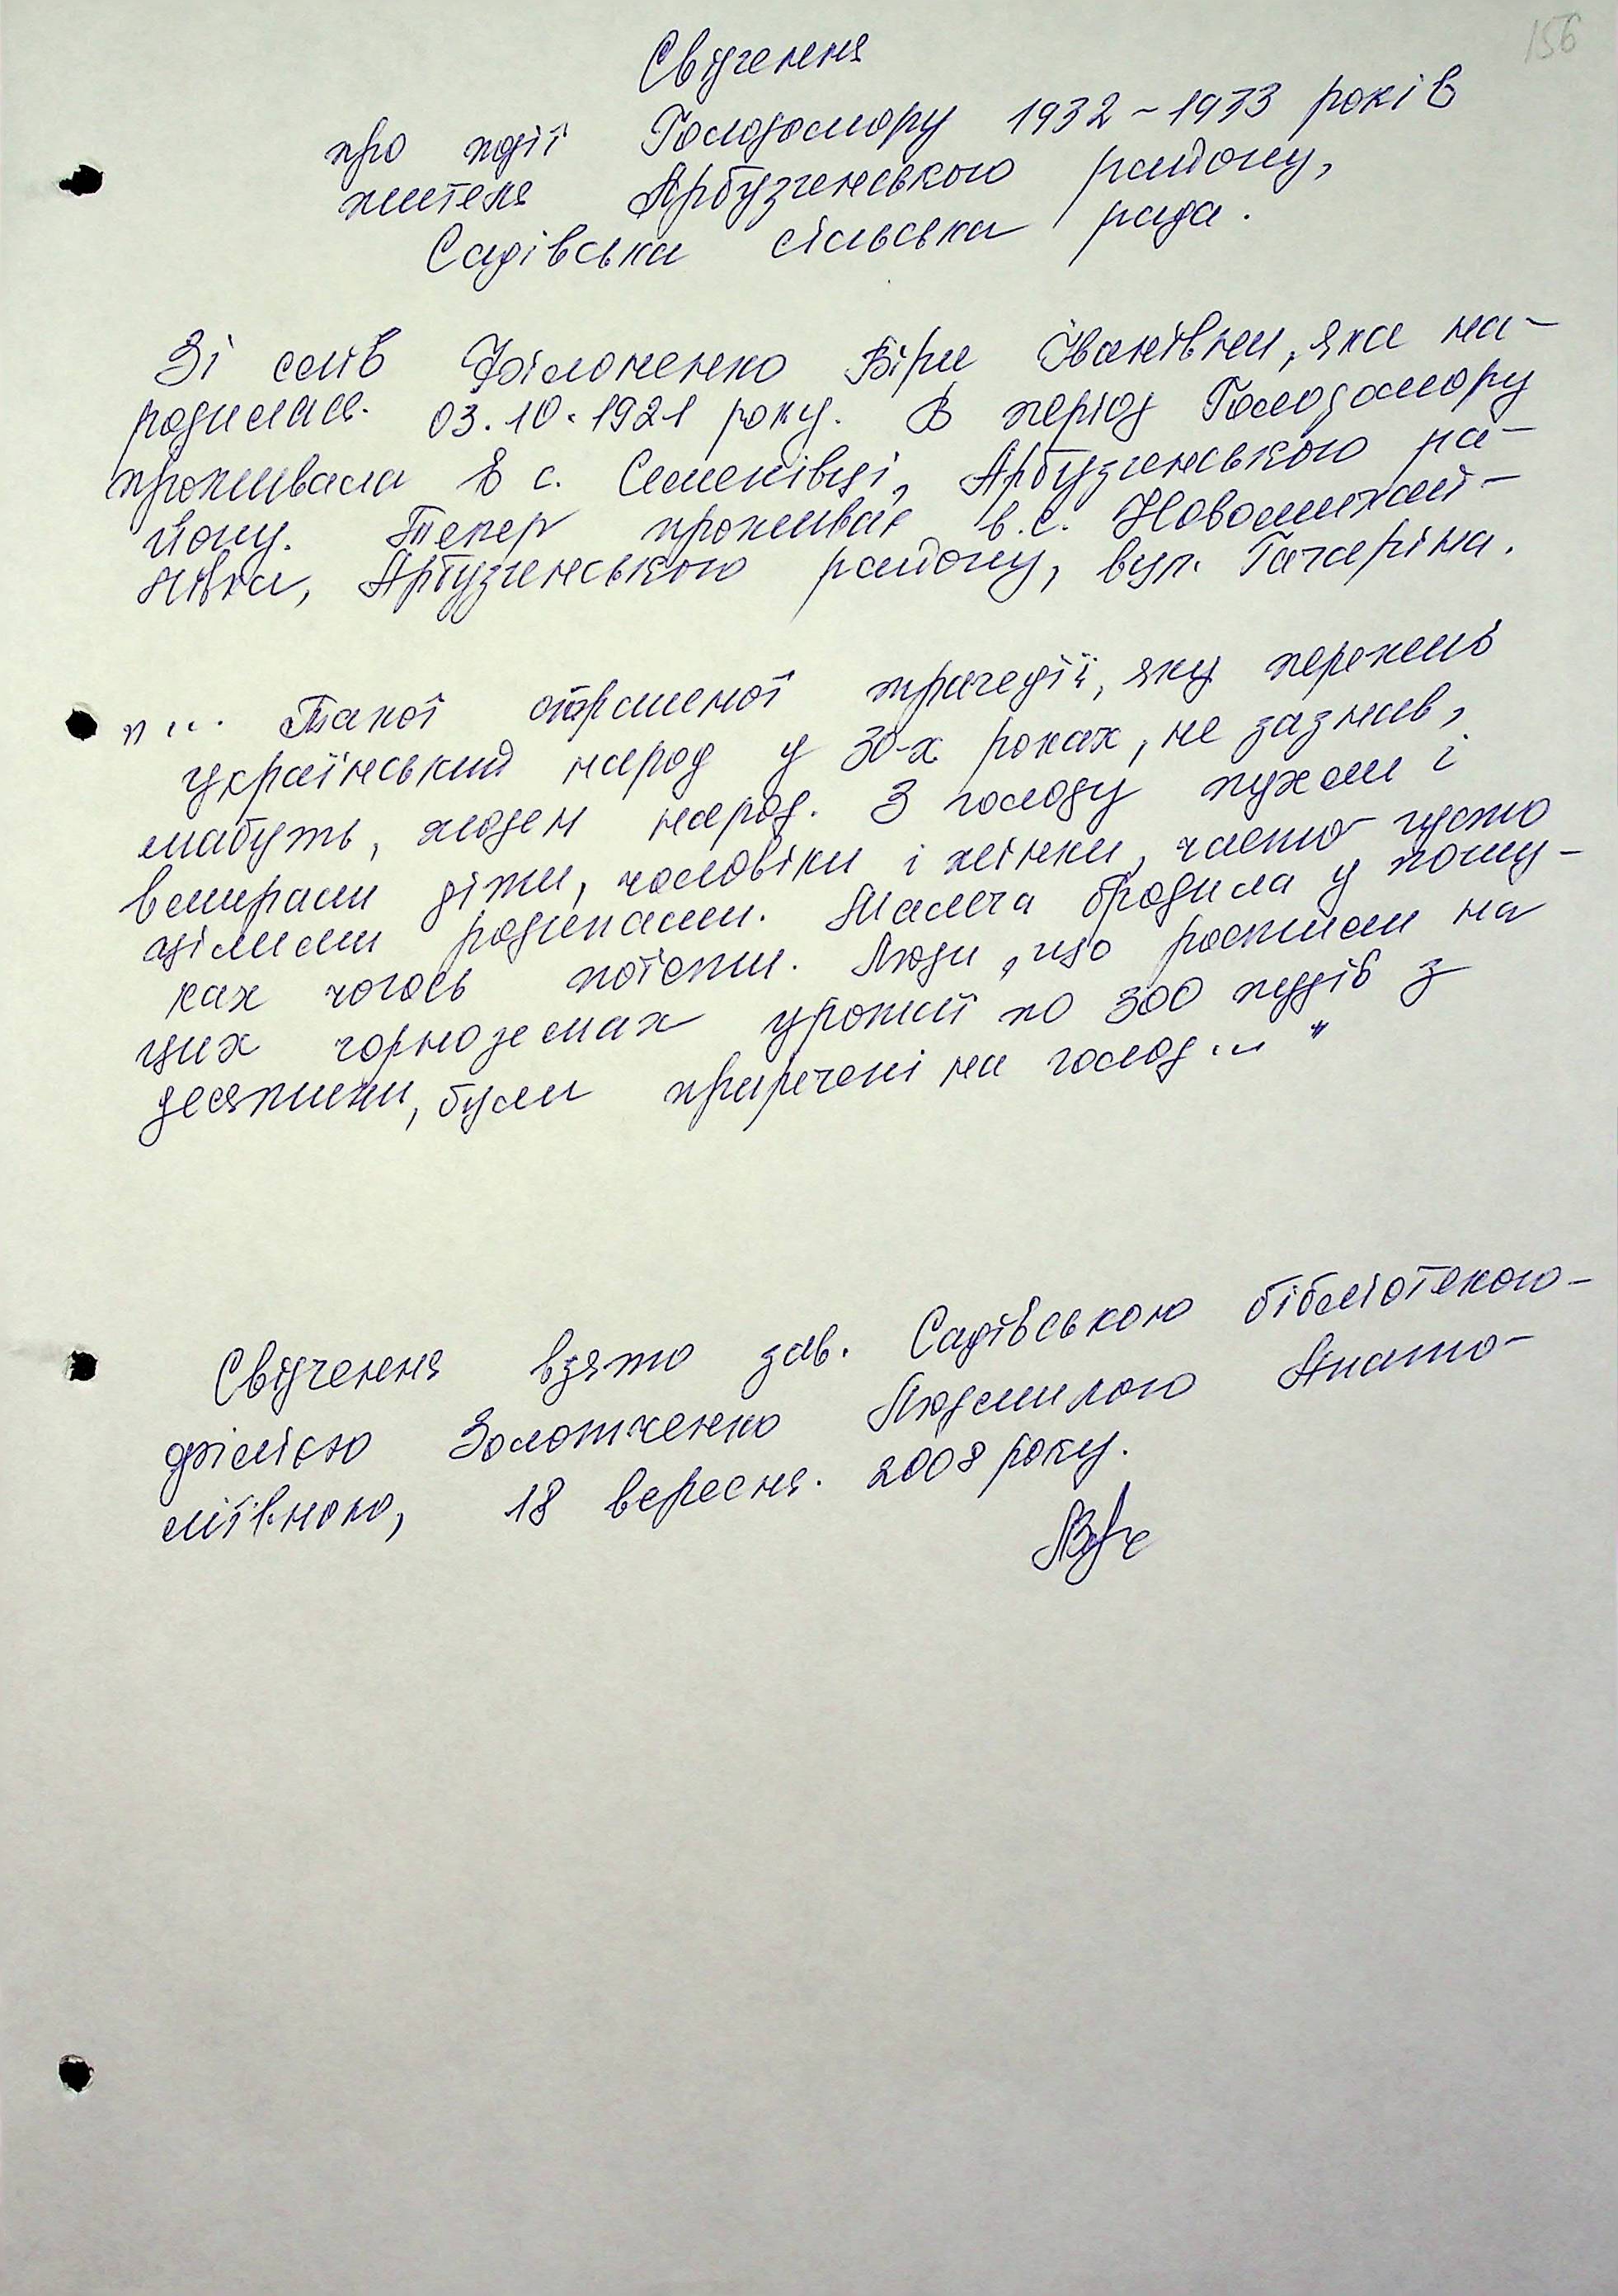 156
Свідчення
про події Голодомору 1932-1933 років
жителя Арбузинського району,
Садівська сільська рада.
Зі слів Філоненко Віри Іванівни, яка на-
родилася. 03.10.1921 року. В період Голодомору
проживала в с. Семенівці, Арбузинського ра-
йону. Тепер проживає в.с. Новомихай-
лівка, Арбузинського району, вул. Гагаріна.
"... Такої страшної трагедії, яку пережив
український народ у 30-х роках, не зазнав,
мабуть, жоден народ. З голоду пухли і
вмирали діти, чоловіки і жінки, часто-густо
цілими родинами. Малеча бродила у пошу-
ках чогось поїсти. Люди, що ростили на
цих чорноземах урожаї по 300 пудів з
десятини, були приречені на голод..."
Свідчення взято зав. Садівською бібліотекою-
філією Золотченко Людмилою Анато-
ліївною, 18 вересня. 2008 року.